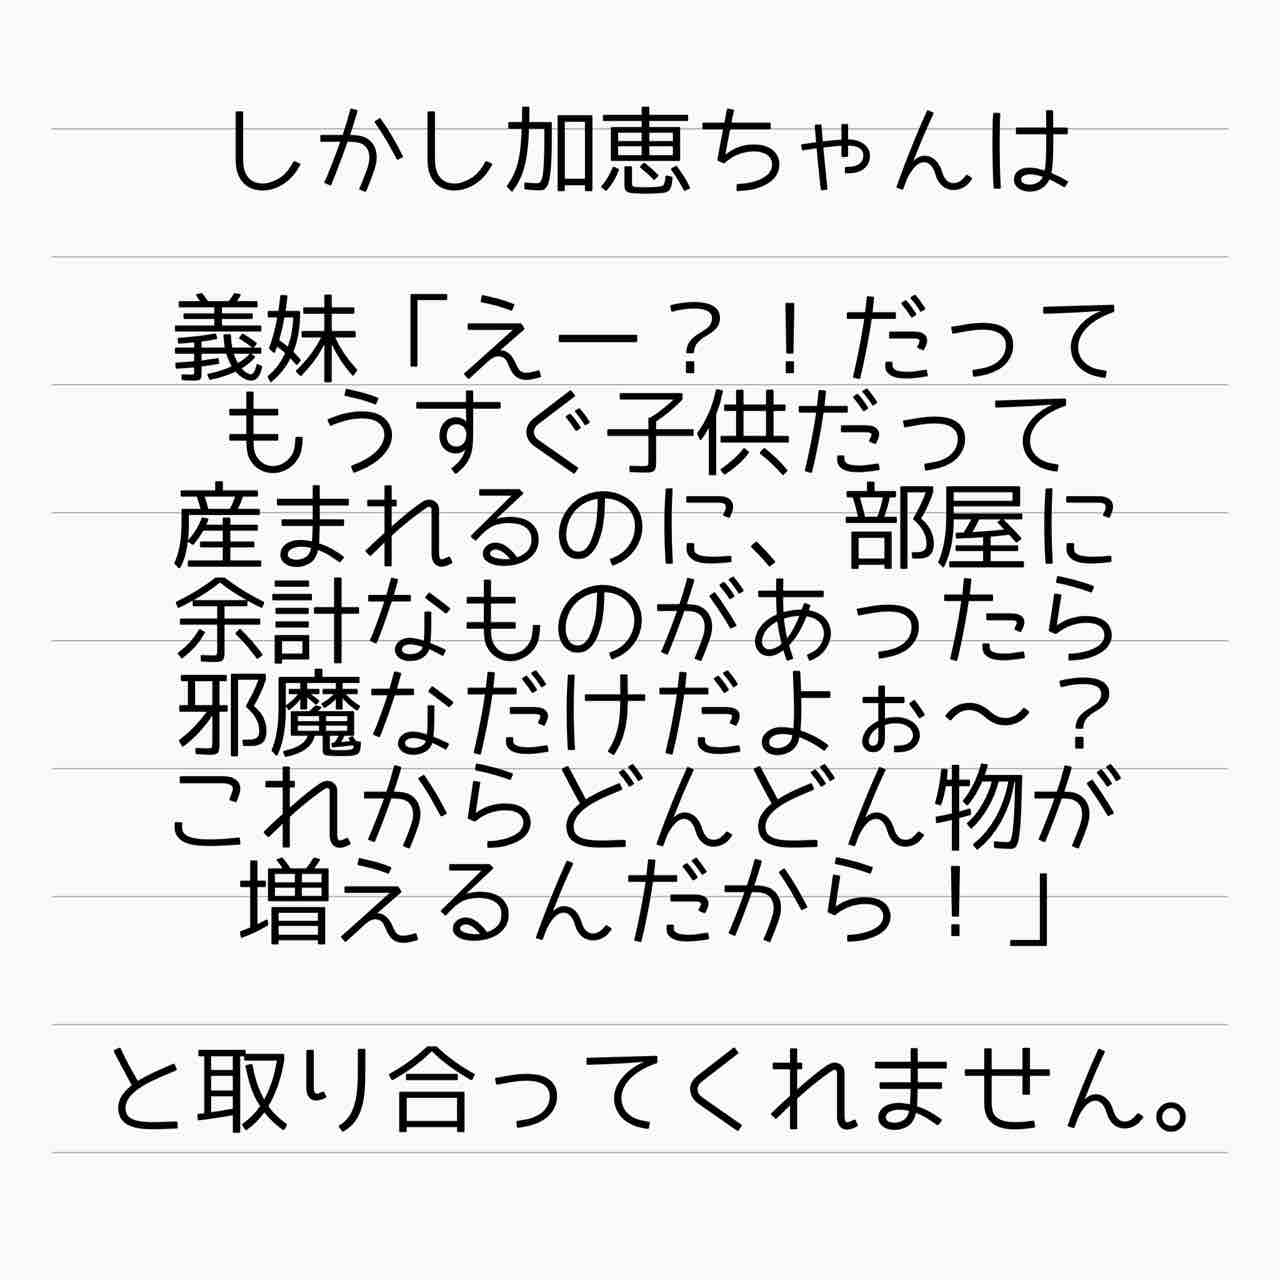 しかし加恵ちゃんは
義妹「えー？！だって
もうすぐ子供だって
産まれるのに、部屋に
余計なものがあったら
邪魔なだけだよぉ〜？
これからどんどん物が
増えるんだから！」
と取り合ってくれません。